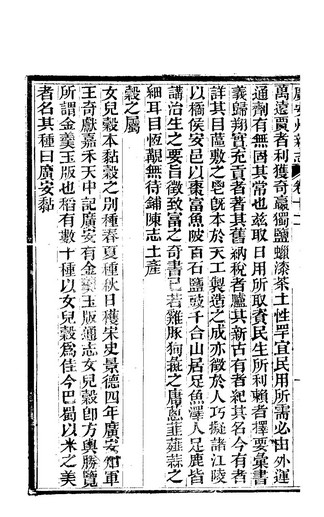 廣安州新志 卷十二
萬遠賈者利獲奇贏獨鹽蠟漆茶土性罕宜民用所需必由外運
通劑有無固其常也茲取日用所取資民生所利賴者擇要彙書
義歸翔實充貢者著其舊納稅者臚其新古有者紀其名今有者
詳其目菑敷之皀旣本於天工製造之成亦徵於人巧擬諸江陵
以橘侯安邑以棗富魚陂百石鹽豉千合山居足魚澤人足鹿皆
講治生之要旨徵致富之奇書已若雞豚狗彘之庸蔥韮薤蒜之
細耳目恆覯無待鋪陳志土產
穀之屬
女兒穀本黏穀之別種春夏種秋日穫宋史景德四年廣安軍
王奇獻嘉禾天中記廣安有金羹玉版通志女兒穀卽方輿勝覽
所謂金羹玉版也稻有數十種以女兒穀爲佳今巴蜀以米之美
者名其種曰廣安黏